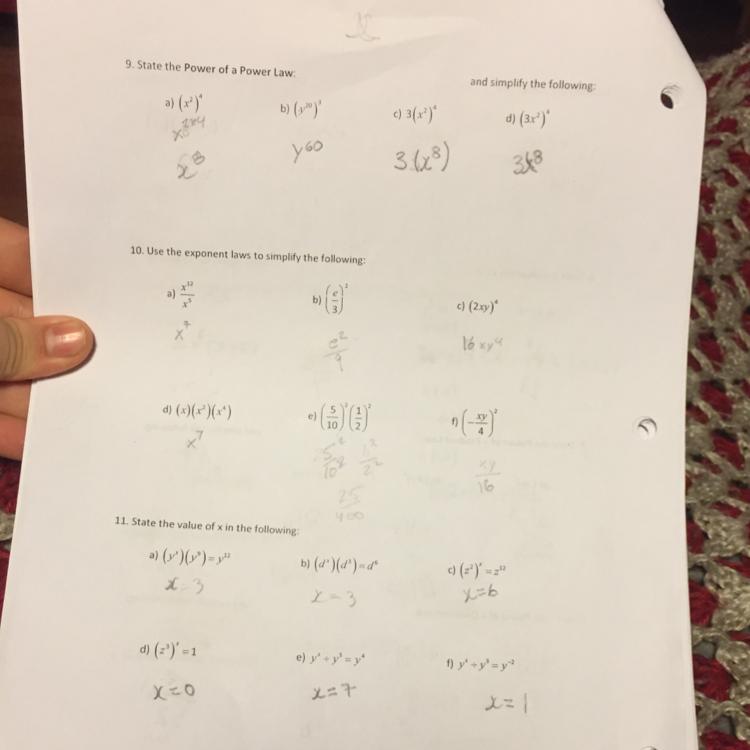 9. State the Power of a Power Law: and simplify the following:
a) (x²)⁴ b) (y²⁰)³ c) 3(x²)⁴ d) (3x²)⁴
x²ˣ⁴
x⁸ y⁶⁰ 3(x⁸) 3x⁸
10. Use the exponent laws to simplify the following:
a) x¹²/x⁵ b) (e/3)² c) (2xy)⁴
x⁷ e²/9 16xy⁴
d) (x)(x²)(x⁴) e) (5/10)²(1/2)² f) (-xy/4)²
x⁷ 5²/10² 1²/2² xy/16
25/400
11. State the value of x in the following:
a) (yˣ)(y⁹)=y¹² b) (dˣ)(d³)=d⁶ c) (z²)ˣ=z¹²
x=3 x=3 x=6
d) (z³)ˣ=1 e) yˣ÷y³=y⁴ f) yˣ÷y³=y⁻²
x=0 x=7 x=1